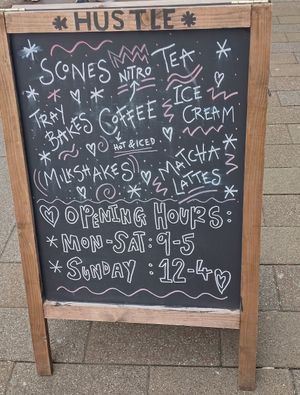 HUSTLE
SCONES NITRO TEA
TRAY BAKES COFFEE ICE CREAM
HOT & ICED
MILKSHAKES MATCHA LATTES
OPENING HOURS:
MON-SAT: 9-5
SUNDAY: 12-4